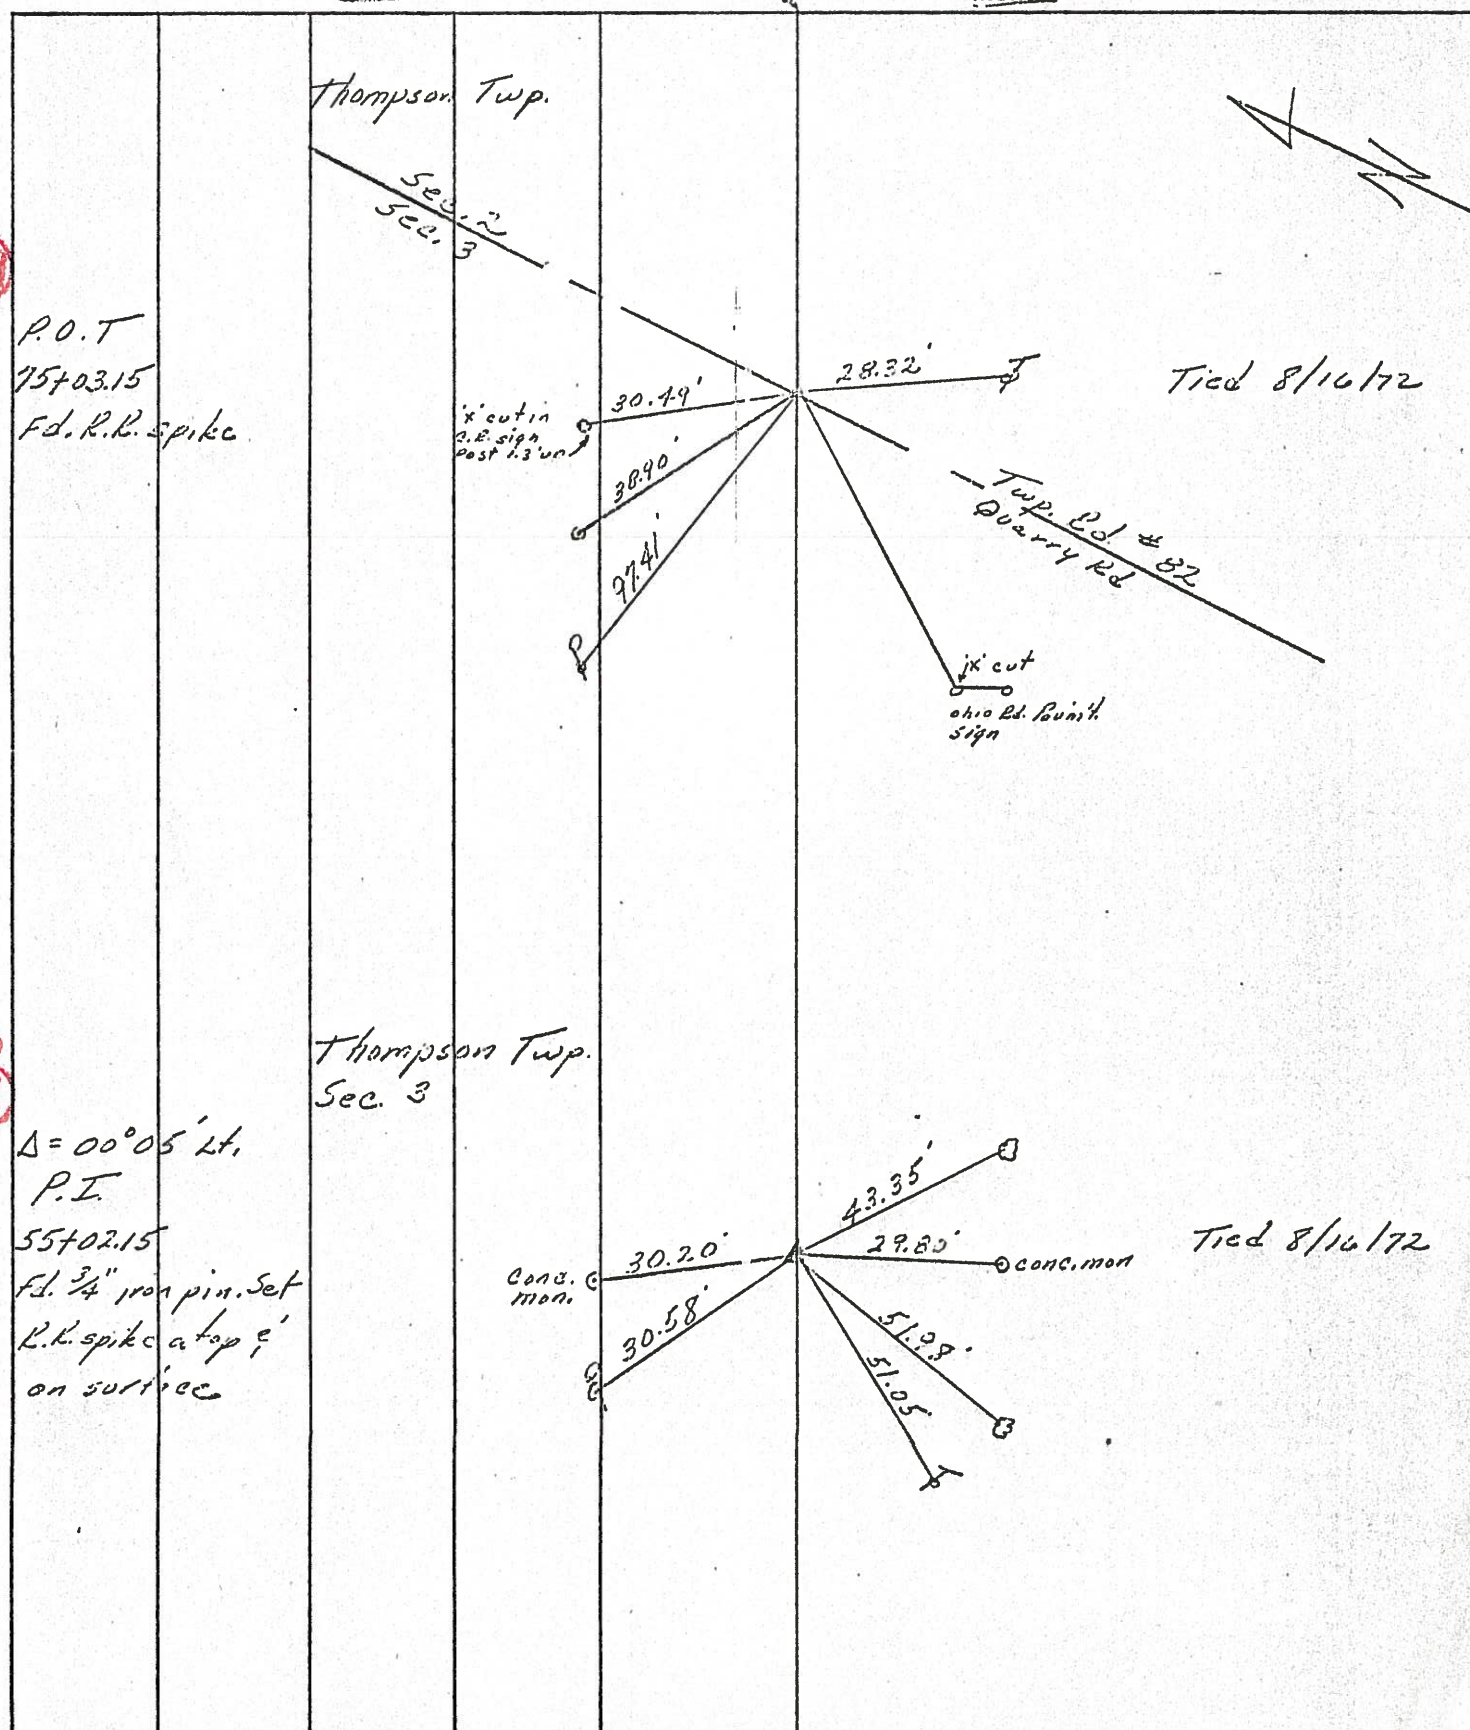 Thompson Twp.
Sec. 2
Sec. 3
P.O.T
75+03.15
Fd. R.R. spike
'x' cut in
R.R. sign
Post 1.3' up
30.49'
28.32'
Tied 8/16/72
38.90'
97.41'
Twp. Rd. # 82
Quarry Rd
'x' cut
Ohio Rd.
sign
Thompson Twp.
Sec. 3
Δ = 00°05' Lt.
P.I.
55+02.15
fd. 3/4" iron pin. Set
R.R. spike atop &
on surface
Conc.
mon.
30.20'
30.58'
43.35'
29.80'
conc. mon
51.98'
51.05'
Tied 8/16/72